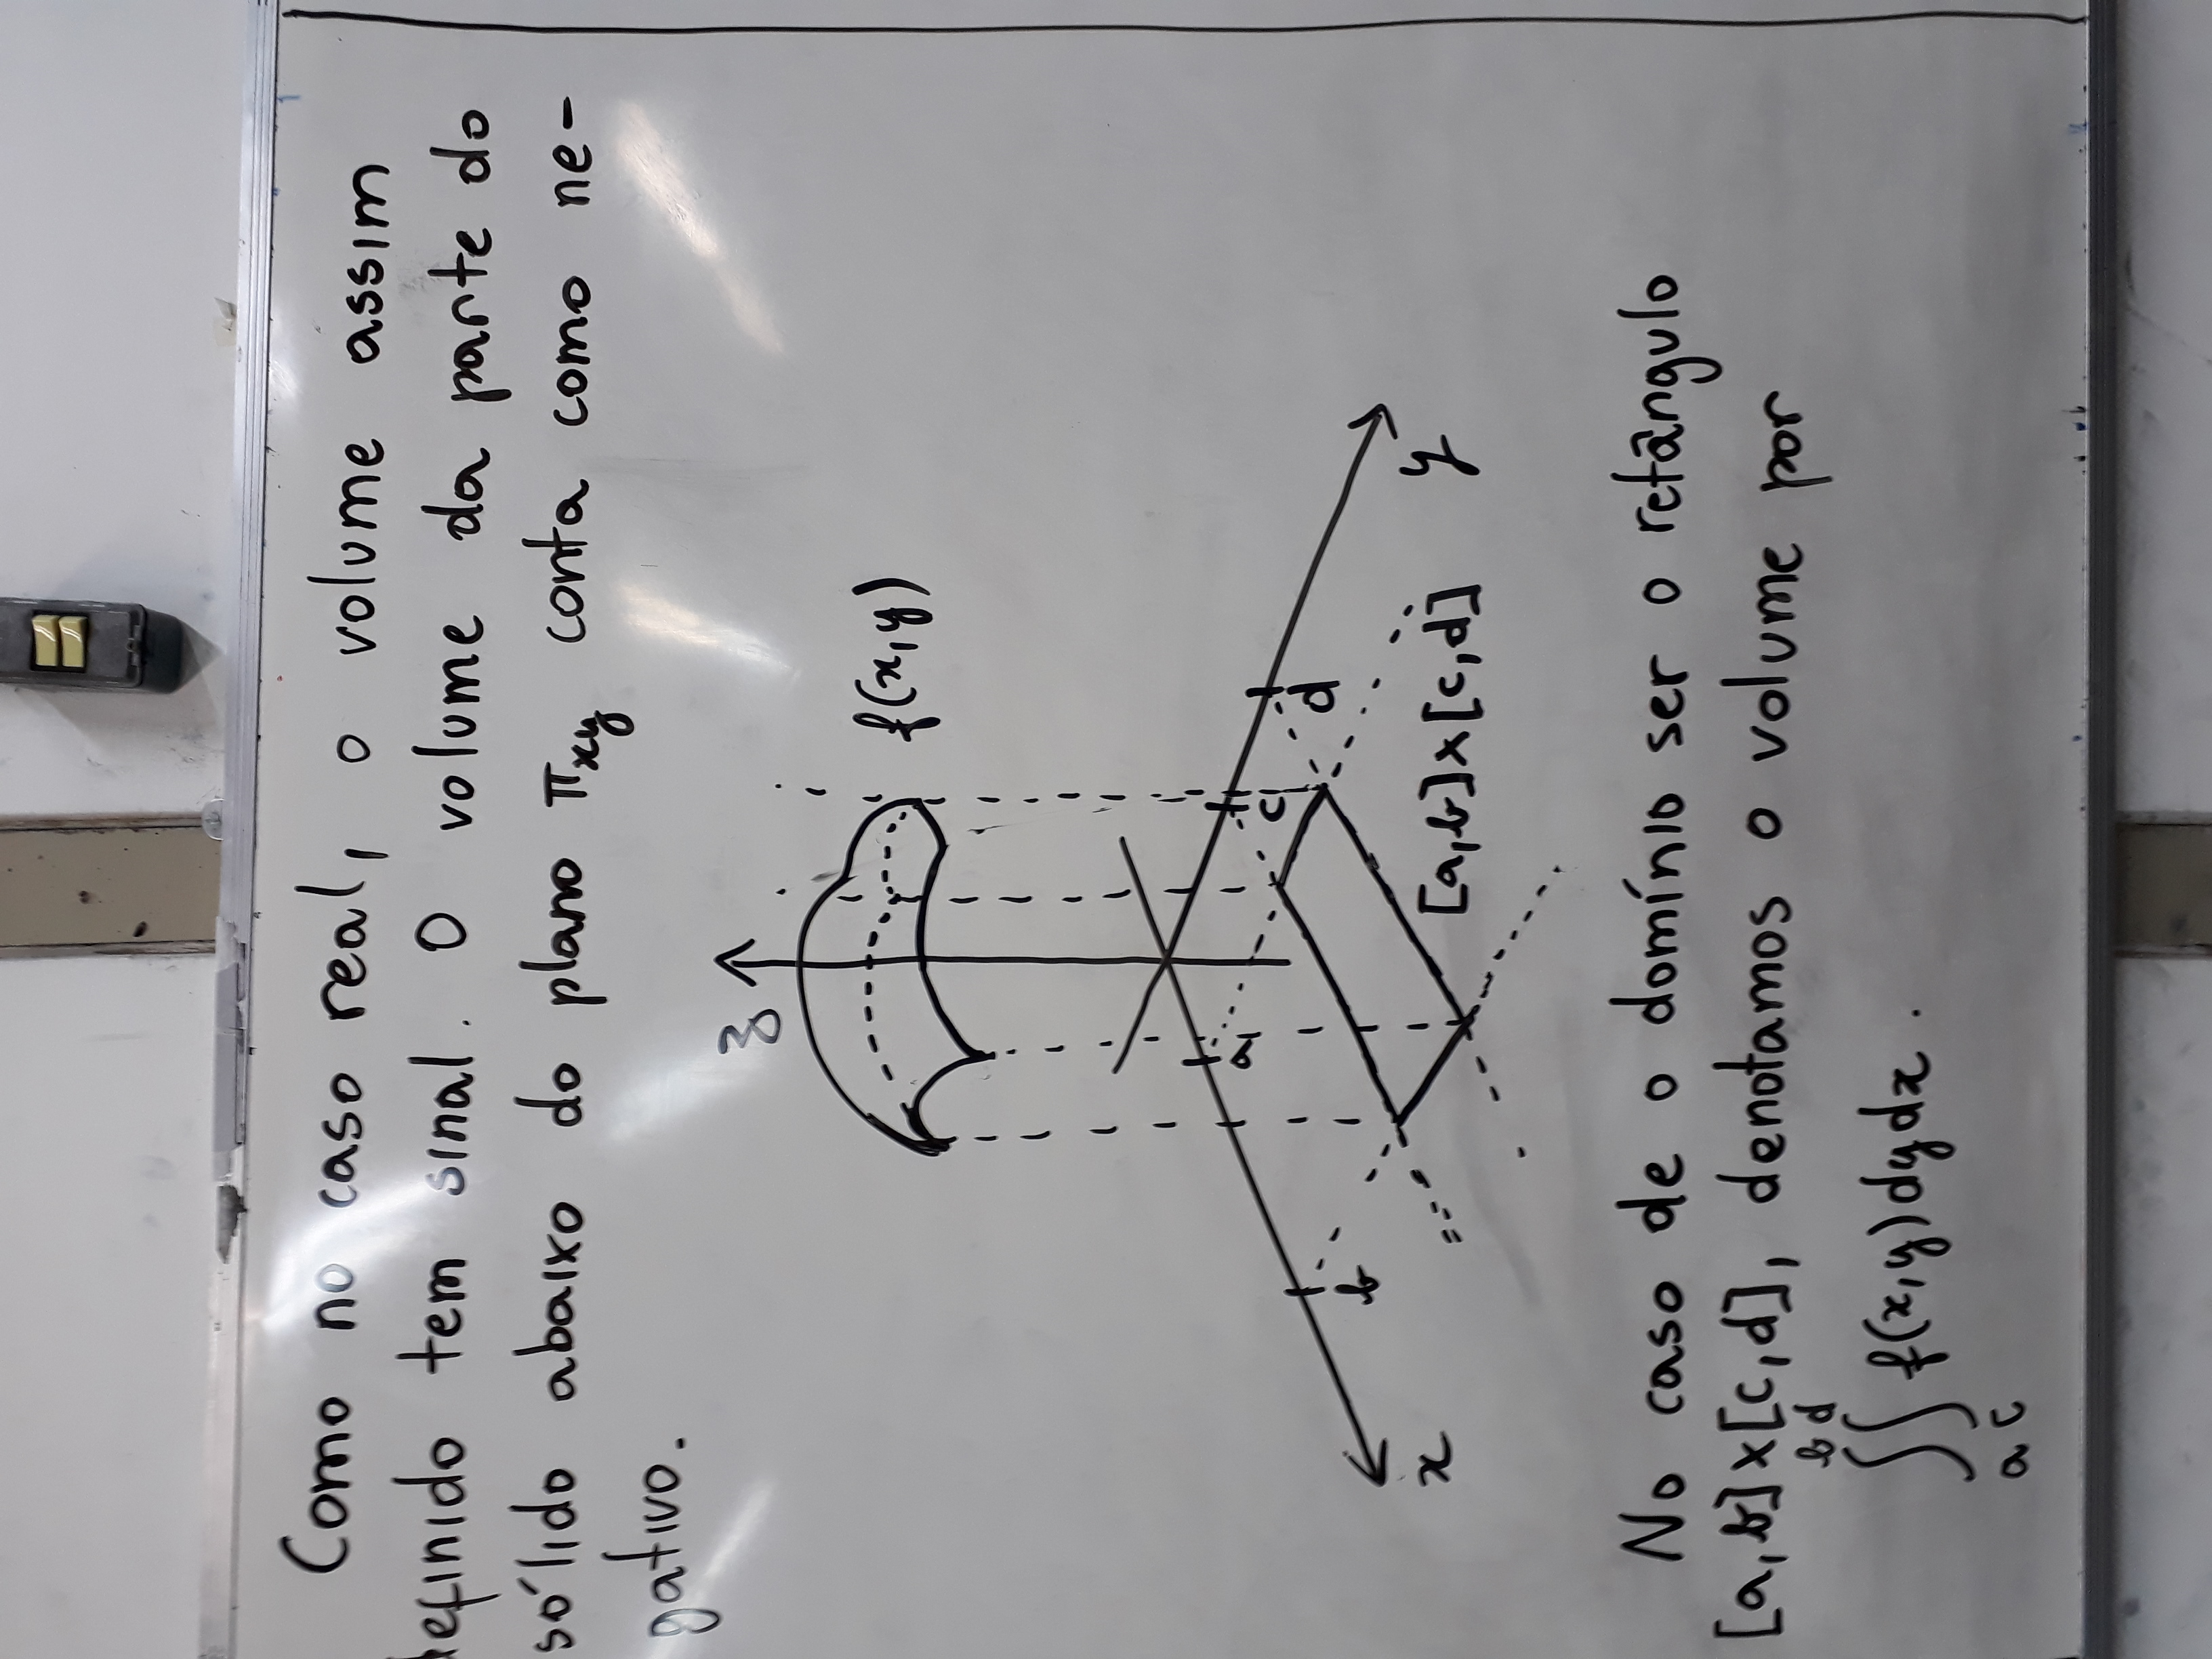 Como no caso real, o volume assim
definido tem sinal. O volume da parte do
sólido abaixo do plano πxy conta como ne-
gativo.
z
f(x,y)
a
c
d
b
x
y
[a,b]x[c,d]
No caso de o domínio ser o retângulo
[a,b]x[c,d], denotamos o volume por
b d
∫∫ f(x,y)dydx.
a c